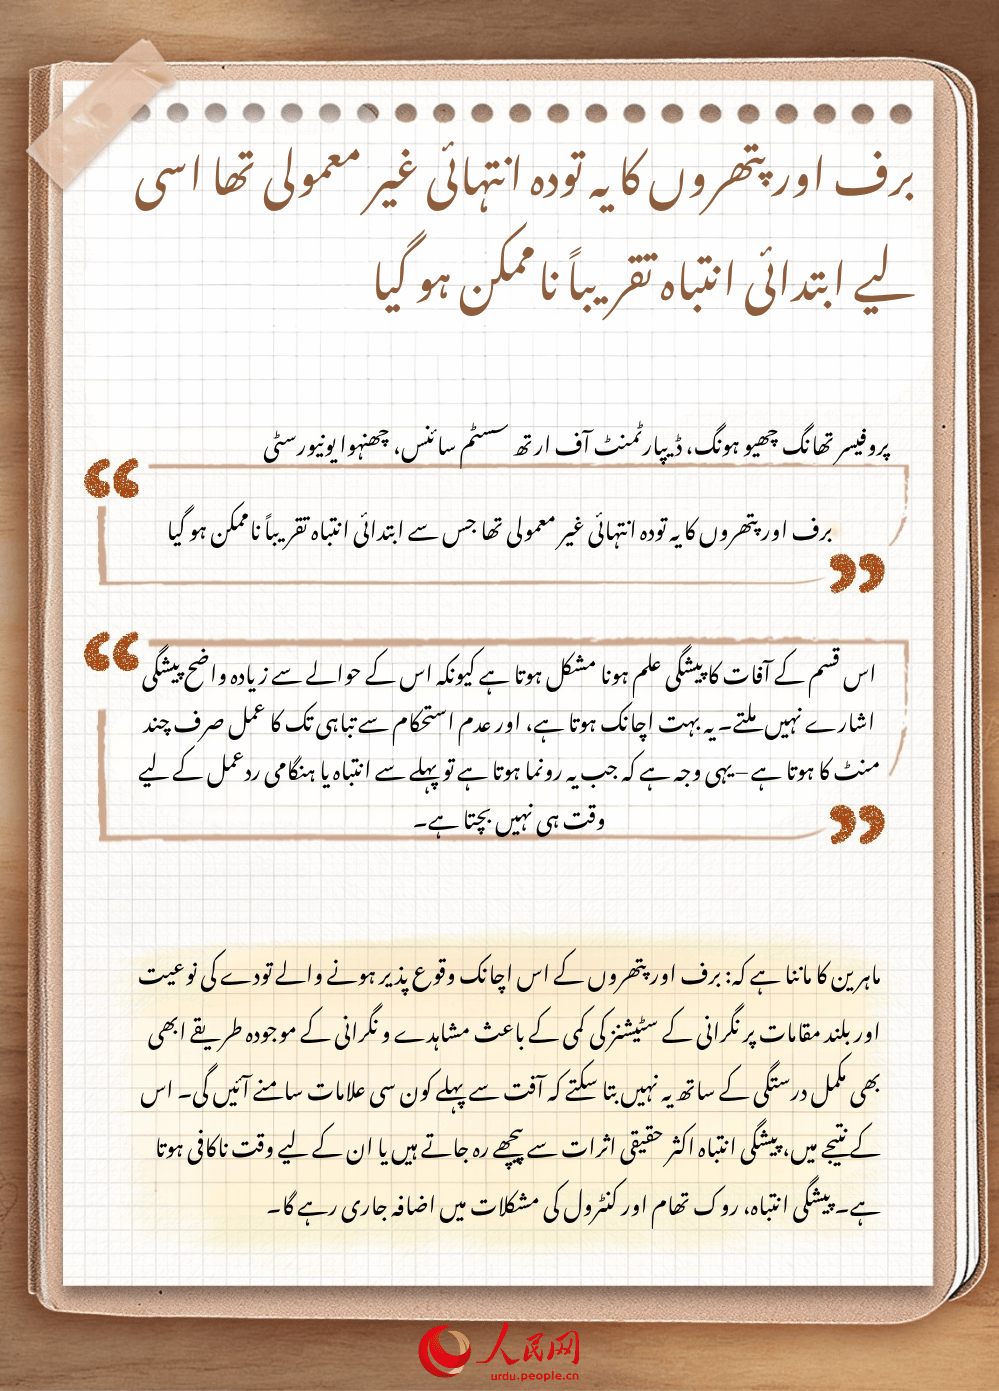 برف اور پتھروں کا یہ تودہ انتہائی غیر معمولی تھا اسی
لیے ابتدائی انتباہ تقریباً ناممکن ہو گیا
پروفیسر تھانگ چھیو ہونگ، ڈیپارٹمنٹ آف ارتھ سسٹم سائنس، چھنہوا یونیورسٹی
برف اور پتھروں کا یہ تودہ انتہائی غیر معمولی تھا جس سے ابتدائی انتباہ تقریباً ناممکن ہو گیا
اس قسم کے آفات کا پیشگی علم ہونا مشکل ہوتا ہے کیونکہ اس کے حوالے سے زیادہ واضح پیشگی
اشارے نہیں ملتے۔ یہ بہت اچانک ہوتا ہے، اور عدم استحکام سے تباہی تک کا عمل صرف چند
منٹ کا ہوتا ہے – یہی وجہ ہے کہ جب یہ رونما ہوتا ہے تو پہلے سے انتباہ یا ہنگامی ردعمل کے لیے
وقت ہی نہیں بچتا ہے۔
ماہرین کا ماننا ہے کہ: برف اور پتھروں کے اس اچانک وقوع پذیر ہونے والے تودے کی نوعیت
اور بلند مقامات پر نگرانی کے سٹیشنز کی کمی کے باعث مشاہدے و نگرانی کے موجودہ طریقے ابھی
بھی مکمل درستگی کے ساتھ یہ نہیں بتا سکتے کہ آفت سے پہلے کون سی علامات سامنے آئیں گی۔ اس
کے نتیجے میں، پیشگی انتباہ اکثر حقیقی اثرات سے پیچھے رہ جاتے ہیں یا ان کے لیے وقت ناکافی ہوتا
ہے۔ پیشگی انتباہ، روک تھام اور کنٹرول کی مشکلات میں اضافہ جاری رہے گا۔
人民网
urdu.people.cn